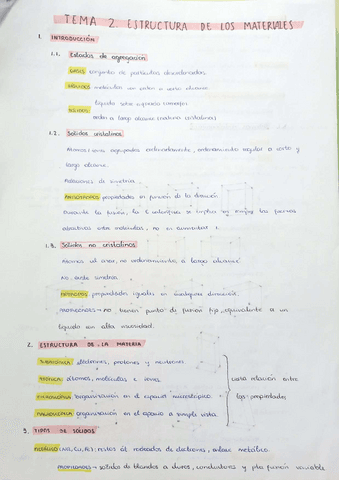 TEMA 2. ESTRUCTURA DE LOS MATERIALES
1. INTRODUCCIÓN
1.1. Estados de agregación
GASES conjunto de partículas desordenadas
LÍQUIDOS moléculas sin orden a largo alcance
líquido sobre
SÓLIDOS
orden a largo alcance (sólidos cristalinos)
1.2. Sólidos cristalinos
Átomos/iones agrupados ordenadamente, ordenamiento regular a corto y
largo alcance.
Relaciones de simetría.
ANISÓTROPOS: propiedades en función de la dirección
Durante la fusión, la E calorífica se emplea en romper las fuerzas
atractivas entre moléculas, no en aumentar T.
1.3. Sólidos no cristalinos
Átomos al azar, no ordenamiento a largo alcance
No existe simetría.
ISÓTROPOS: propiedades iguales en cualquier dirección.
PROPIEDADES → no tienen punto de fusión fijo, equivalente a un
líquido con alta viscosidad.
2. ESTRUCTURA DE LA MATERIA
SUBATÓMICA: electrones, protones y neutrones
ATÓMICA: átomos, moléculas e iones.
MICROSCÓPICA: organización en el espacio microscópico.
MACROSCÓPICA: organización en el espacio a simple vista.
relación entre
las propiedades
3. TIPOS DE SÓLIDOS
METÁLICO (Na, Cu, Fe): restos rodeados de electrones, enlace metálico.
PROPIEDADES → sólidos de blandos a duros, conductores y pto fusión variable